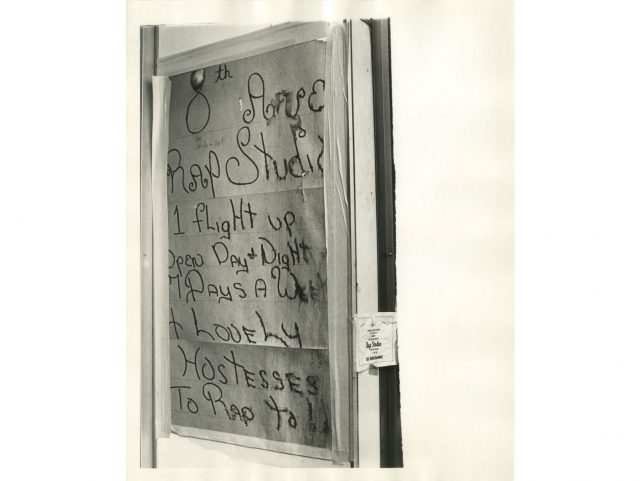 8th Ave
Rap Studio
1 flight up
Open Day & Night
7 Days A Week
4 Lovely
Hostesses
To Rap to!!
Rap Studio